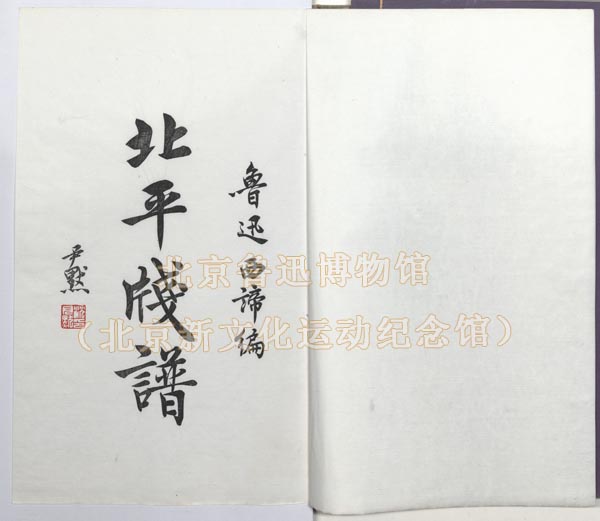 鲁迅西谛编
北平牋譜
尹默
北京鲁迅博物馆
（北京新文化运动纪念馆）